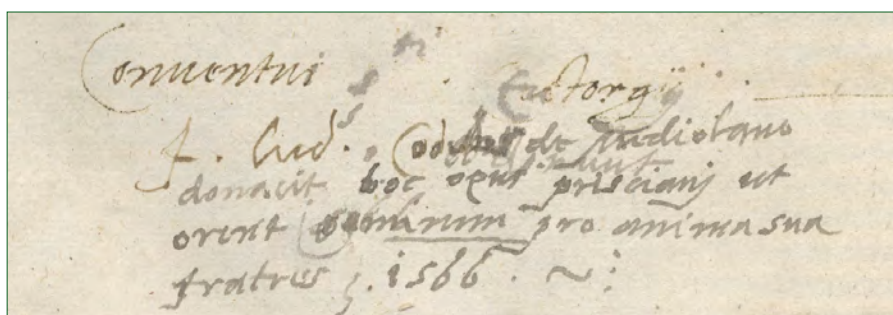 Conventui S. Eustorgij
f. Lud. de mediolano
donavit hoc opus prisciani ut
orent dominum pro anima sua
fratres. 1566.